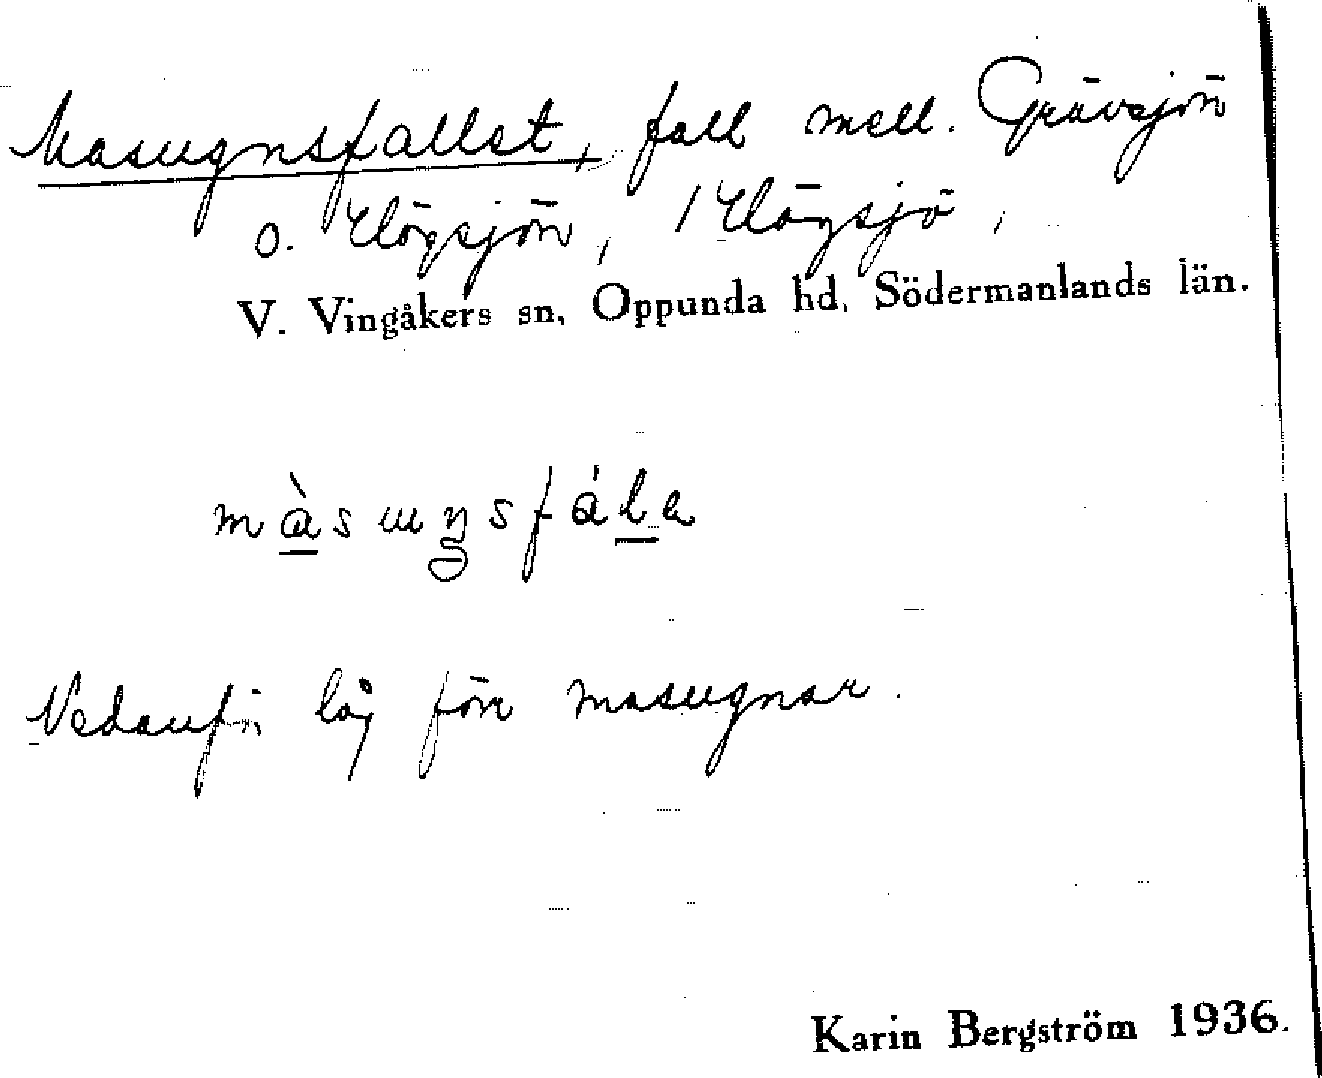 Masugnsfallet, fall mell. Gråvsjön
o. Högsjön, 1 Högsjö,
V. Vingåkers sn, Oppunda hd, Södermanlands län.
låg förr masugnar.
Karin Bergström 1936.